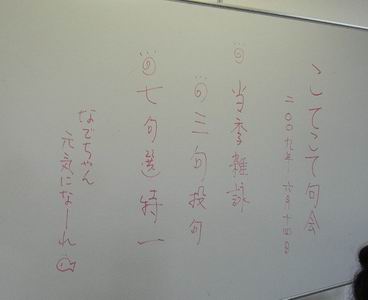 こしてこて句会
二〇〇九年六月十四日
当季雑詠
三句投句
七句選特一
なでちゃん
元気になーれ